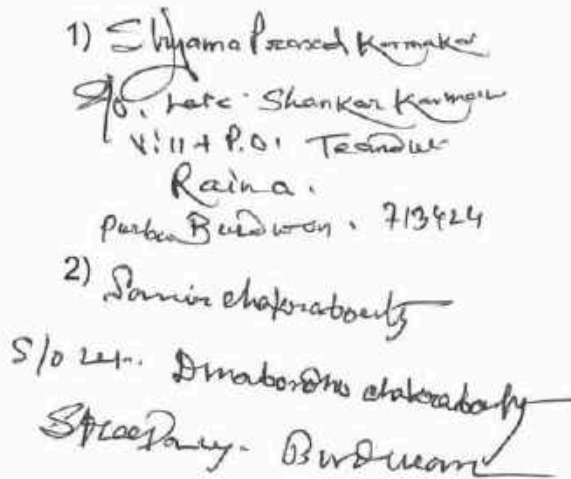 1) Shyama Prasad Karmakar
S/o. Late Shankar Karmakar
Vill + P.O. Teandul
Raina.
Purba Burdwan. 713424
2) Samir Chakraborty
S/o Late. Dinabandhu Chakraborty
Burdwan